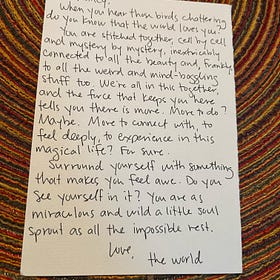 When you hear those birds chattering
do you know that the world loves you?
You are stitched together, cell by cell
and mystery by mystery, inextricably
connected to all the beauty and, frankly,
to all the weird and mind-boggling
stuff too. We're all in this together,
and the force that keeps you here
tells you there is more. More to do?
Maybe. More to connect with, to
feel deeply, to experience in this
magical life? For sure.
Surround yourself with something
that makes you feel awe. Do you
see yourself in it? You are as
miraculous and wild a little soul
sprout as all the impossible rest.
Love,
the world